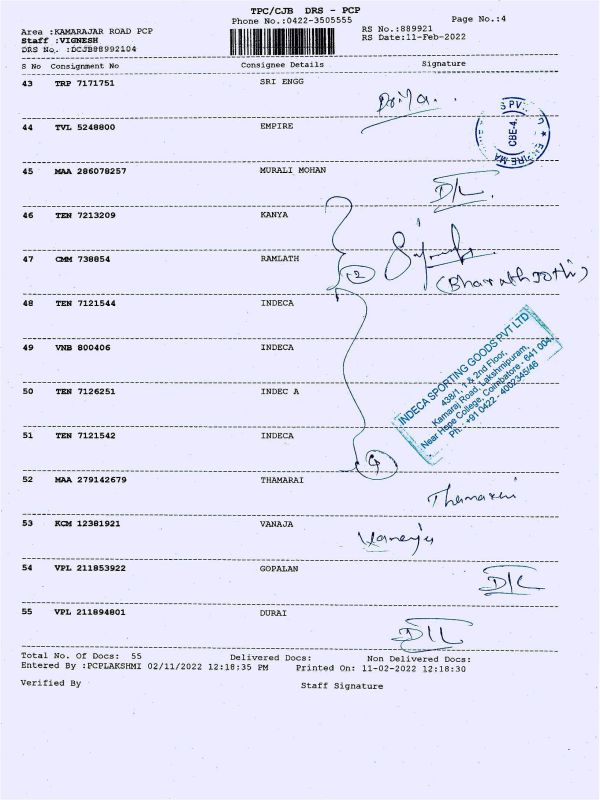 TPC/CJB DRS - PCP
Phone No.:0422-3505555 Page No.:4
Area :KAMARAJAR ROAD PCP RS No.:889921
Staff :VIGNESH RS Date:11-Feb-2022
DRS No. :DCJB88992104
S No Consignment No Consignee Details Signature
43 TRP 7171751 SRI ENGG
Priya
44 TVL 5248800 EMPIRE
CBE-4.
45 MAA 286078257 MURALI MOHAN
D/L
46 TEN 7213209 KANYA
47 CMM 738854 RAMLATH
2
(Bharath Jothi)
48 TEN 7121544 INDECA
49 VNB 800406 INDECA
50 TEN 7126251 INDEC A
51 TEN 7121542 INDECA
INDECA SPORTING GOODS PVT LTD
438/1, 1 & 2nd Floor,
Kamaraj Road, Lakshmipuram,
Near Hope College, Coimbatore - 641 004.
Ph : +91 0422 - 4002345/46
4
52 MAA 279142679 THAMARAI
Thamarai
53 KCM 12381921 VANAJA
Vanaja
54 VPL 211853922 GOPALAN
D/L
55 VPL 211894801 DURAI
D/L
Total No. Of Docs: 55 Delivered Docs: Non Delivered Docs:
Entered By :PCPLAKSHMI 02/11/2022 12:18:35 PM Printed On: 11-02-2022 12:18:30
Verified By Staff Signature